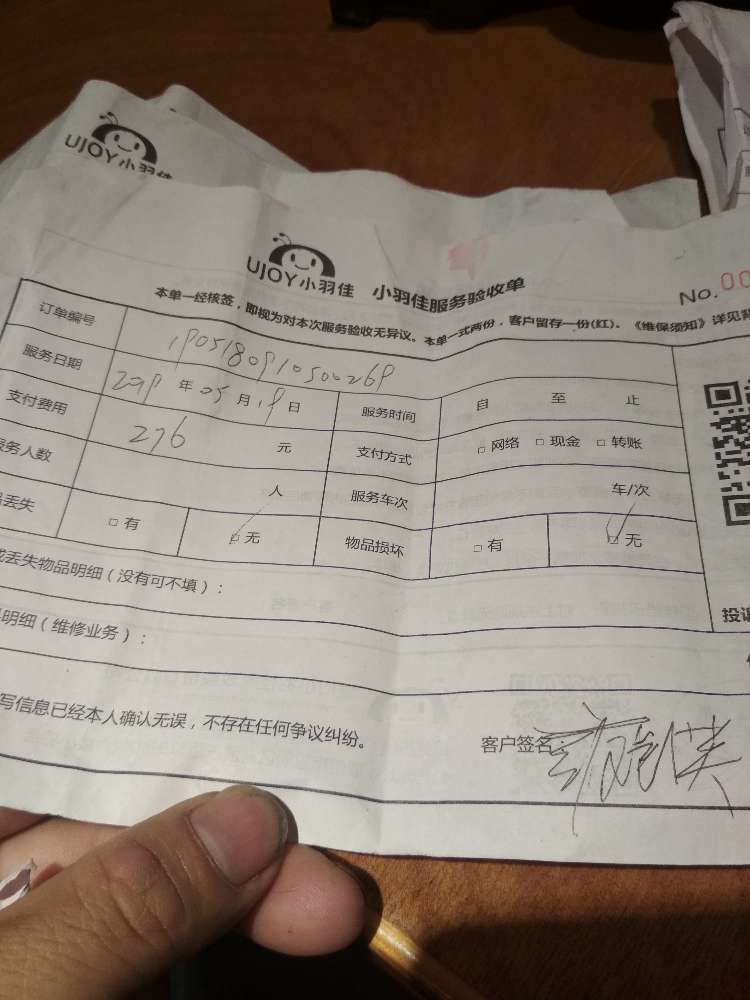 UJOY小羽佳
UJOY小羽佳 小羽佳服务验收单
No.00
本单一经核签，即视为对本次服务验收无异议。本单一式两份，客户留存一份(红)。《维保须知》详见背
订单编号 1905180910500269
服务日期 2019 年 05 月 19 日 服务时间 自 至 止
支付费用 276 元 支付方式 □ 网络 □ 现金 □ 转账
服务人数 人 服务车次 车/次
丢失 □ 有 □ 无 物品损坏 □ 有 □ 无
丢失物品明细（没有可不填）：
明细（维修业务）：
投诉
写信息已经本人确认无误，不存在任何争议纠纷。 客户签名